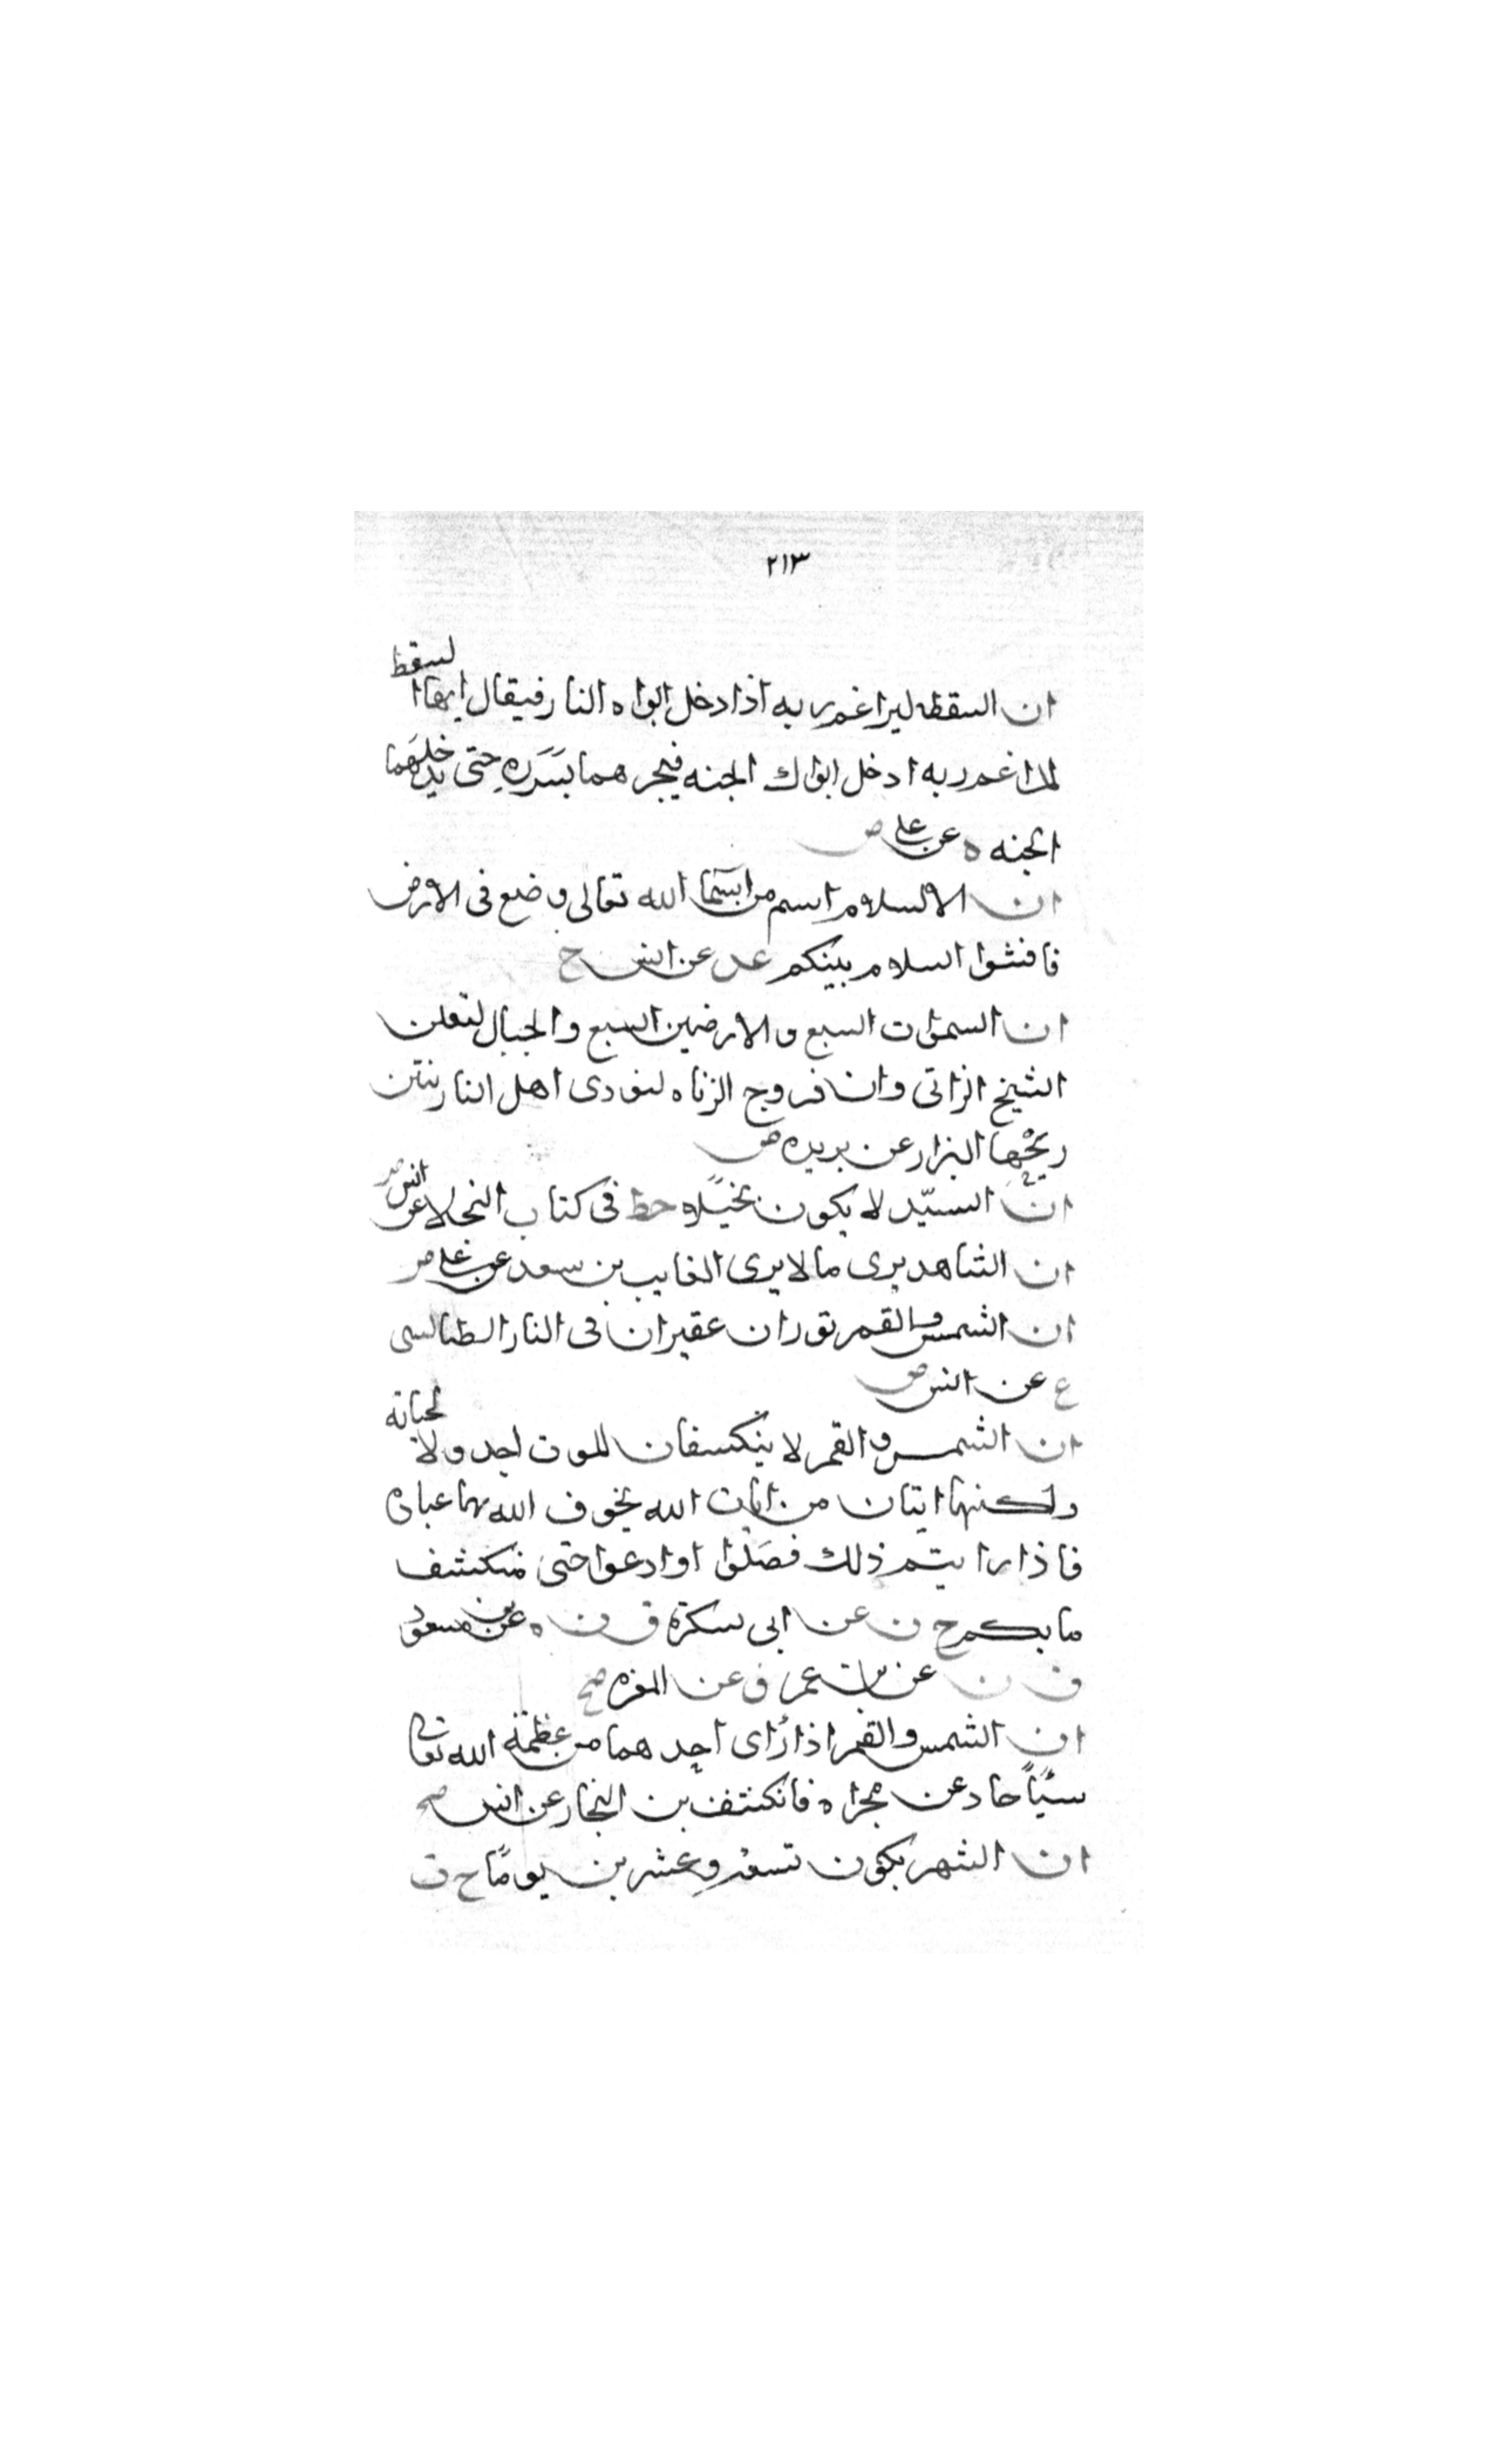 ٢١٣
ان السقط ليراغم ربه اذا دخل ابواه النار فيقال ايها السقط
المراغم ربه ادخل ابواك الجنه فيجرهما بسرره حتى يدخلهما
الجنه ه عن علي ض
ان السلام اسم من اسما الله تعالى وضع فى الارض
فافشوا السلام بينكم عد عن انس ح
ان السموات السبع والارضين السبع والجبال لتعلن
الشيخ الزانى وان فروج الزناه لتودى اهل النار نتن
ريحها البزار عن بريده ض
ان السيّد لا يكون بخيلا خط فى كتاب البخلا عن انس ض
ان الشاهد يرى ما لا يرى الغايب بن سعد عن على ض
ان الشمس والقمر ثوران عقيران فى النار الطيالسى
ع عن انس ض
ان الشمس والقمر لا ينكسفان لموت احد ولا لحياته
ولكنهما ايتان من ايات الله يخوف الله بهما عباده
فاذا رايتم ذلك فصلوا وادعوا حتى ينكشف
ما بكم خ ن عن ابى بكرة ق ن ه عن بن مسعود
ق ن عن بن عمر ق عن المغره صح
ان الشمس والقمر اذا رأى احدهما من عظمة الله تعالى
شيًا حاد عن مجراه فانكشف بن النجار عن انس صح
ان الشهر يكون تسعة وعشرين يومًا خ ت